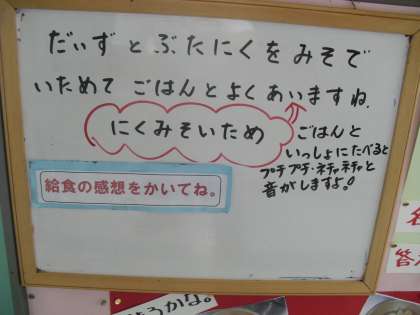 だいずとぶたにくをみそで
いためてごはんとよくあいますね。
にくみそいため
ごはんと
いっしょにたべると
プチプチ・ネチャネチャと
音がしますよ!
給食の感想をかいてね。
うかな。
答